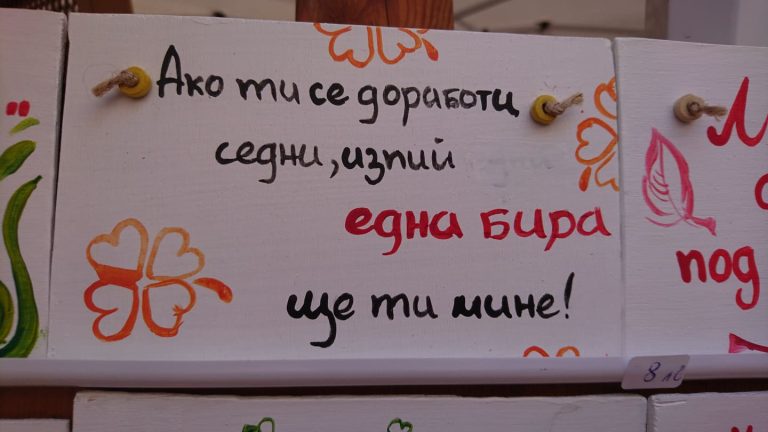 Ако ти се доработи,
седни, изпий
една бира
ще ти мине!
под
8 лв